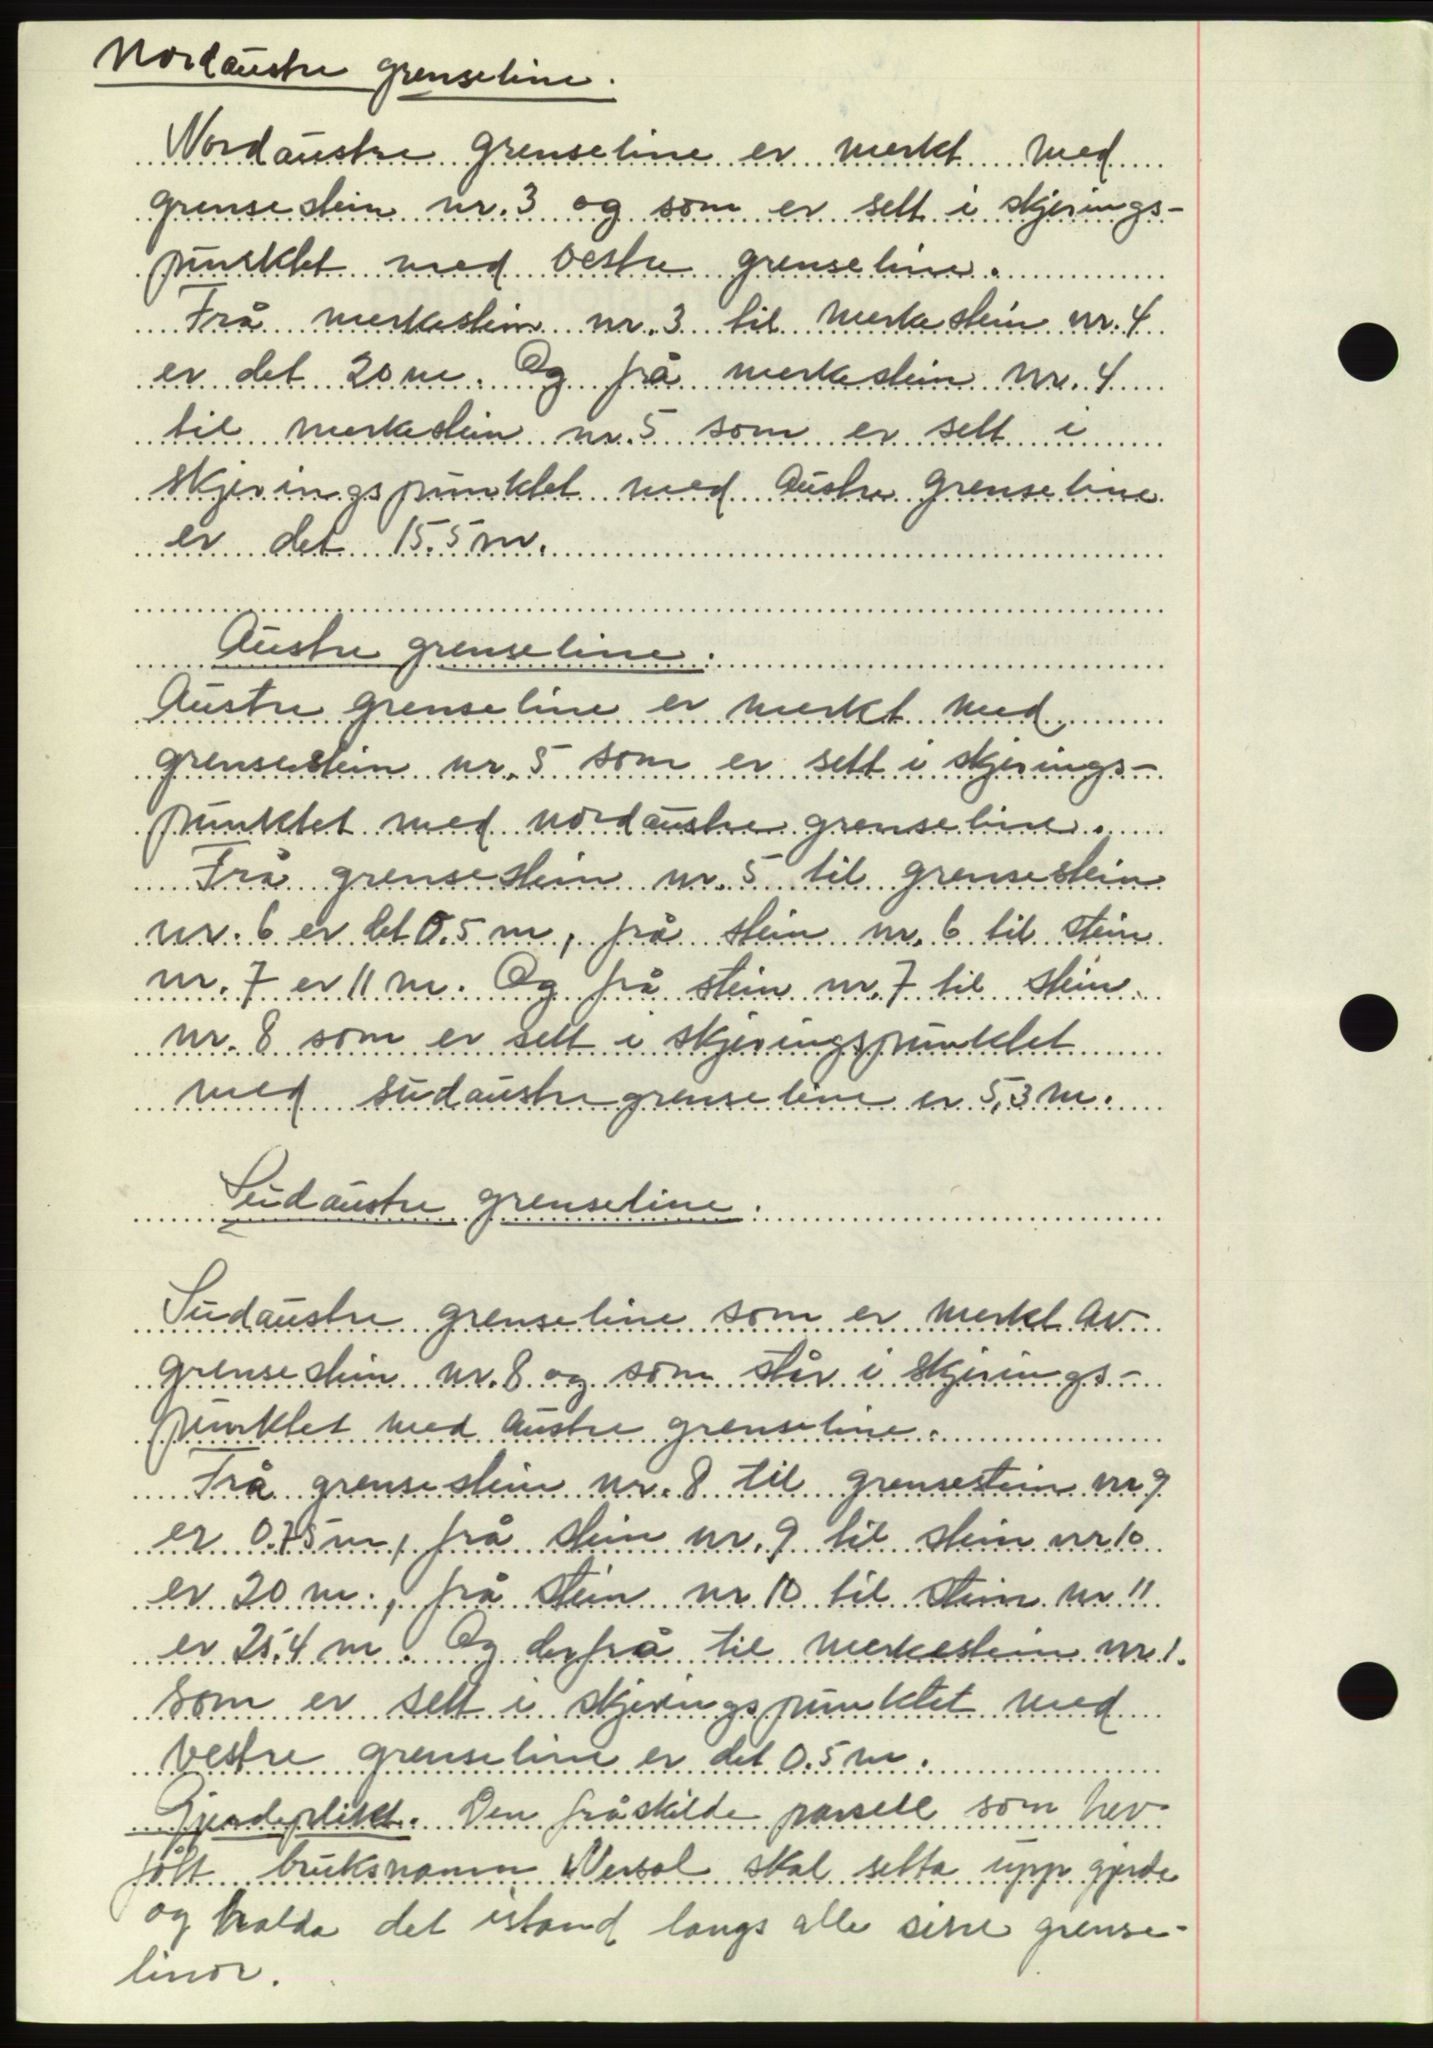 Nordaustre grenseline.
Nordaustre grenseline er merkt med
grensestein nr. 3 og som er sett i skjerings-
punktet med vestre grenseline.
Frå merkestein nr. 3 til merkestein nr. 4
er det 20 m. Og frå merkestein nr. 4
til merkestein nr. 5 som er sett i
skjeringspunktet med Austre grenseline
er det 15.5 m.
Austre grenseline.
Austre grenseline er merkt med
grensestein nr. 5 som er sett i skjerings-
punktet med nordaustre grenseline.
Frå grensestein nr. 5 til grensestein
nr. 6 er det 0.5 m, frå stein nr. 6 til stein
nr. 7 er 11 m. Og frå stein nr. 7 til stein
nr. 8 som er sett i skjeringspunktet
med sudaustre grenseline er 5,3 m.
Sudaustre grenseline.
Sudaustre grenseline som er merkt av
grensestein nr. 8 og som står i skjerings-
punktet med austre grenseline.
Frå grensestein nr. 8 til grensestein nr 9
er 0.75 m, frå stein nr. 9 til stein nr 10
er 20 m., frå stein nr 10 til stein nr 11
er 25.4 m. Og derfrå til merkestein nr 1.
som er sett i skjeringspunktet med
vestre grenseline er det 0.5 m.
Gjerdeplikt. Den fråskilde parsell som hev
fått bruksnamn Nersol skal setta upp gjerde
og halda det istand langs alle sine grense-
linor.